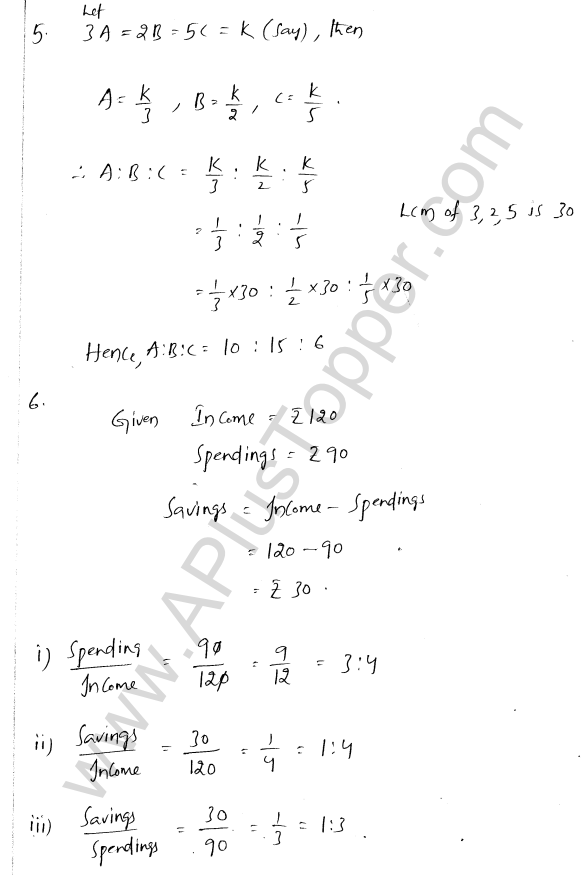 Let
5. 3A = 2B = 5C = K (say), then
A = K/3 , B = K/2 , C = K/5 .
∴ A : B : C = K/3 : K/2 : K/5
= 1/3 : 1/2 : 1/5
LCM of 3, 2, 5 is 30
= 1/3 × 30 : 1/2 × 30 : 1/5 × 30
Hence, A:B:C = 10 : 15 : 6
6.
Given Income = ₹120
Spendings = ₹90
Savings = Income – Spendings
= 120 – 90
= ₹ 30 .
i) Spending/Income = 90/120 = 9/12 = 3:4
ii) Savings/Income = 30/120 = 1/4 = 1:4
iii) Savings/Spendings = 30/90 = 1/3 = 1:3 .
www.APlusTopper.com